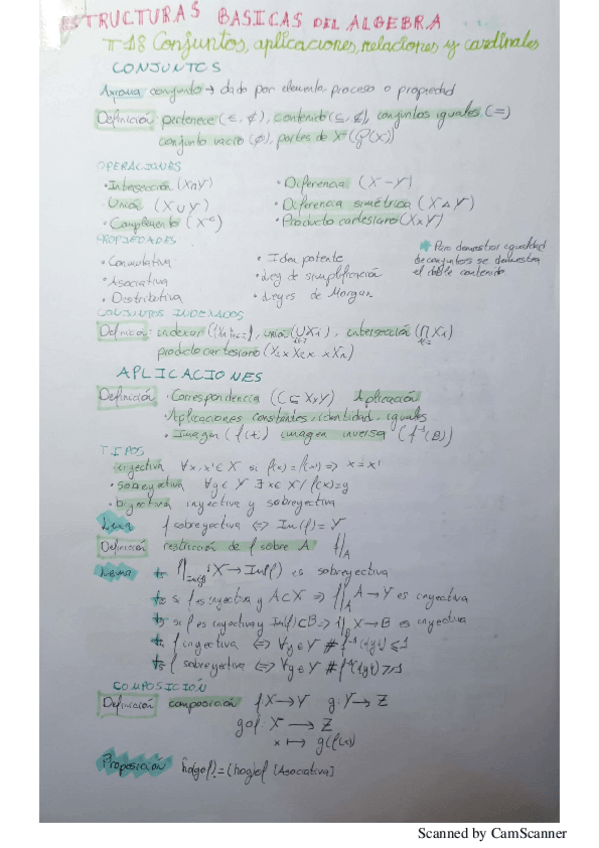 ESTRUCTURAS BASICAS DEL ALGEBRA
T 18 Conjuntos, aplicaciones, relaciones y cardinales
CONJUNTOS
Axioma conjunto → dado por elemento, proceso o propiedad
Definición: pertenece (∈, ∉), contenido (⊆, ⊄), conjuntos iguales (=)
conjunto vacío (∅), partes de X (℘(X))
OPERACIONES
• Intersección (X∩Y) • Diferencia (X-Y)
• Unión (X∪Y) • Diferencia simétrica (X△Y)
• Complemento (Xᶜ) • Producto cartesiano (X×Y)
PROPIEDADES
• Conmutativa • Idempotente
• Asociativa • Ley de simplificación
• Distributiva • Leyes de Morgan
* Para demostrar igualdad
de conjuntos se demuestra
el doble contenido
CONJUNTOS INDEXADOS
Definición: indexar, unión (∪Xi), intersección (∩Xi)
producto cartesiano (X₁×X₂× ×Xn)
APLICACIONES
Definición • Correspondencia (C⊆X×Y) Aplicación
• Aplicaciones constantes, identidad, iguales
• Imagen (f(t)) imagen inversa (f⁻¹(B))
TIPOS
inyectiva ∀x,x'∈X si f(x)=f(x') ⇒ x=x'
• sobreyectiva ∀y∈Y ∃x∈X / f(x)=y
• biyectiva inyectiva y sobreyectiva
Lema f sobreyectiva ⇔ Im(f)=Y
Definición restricción de f sobre A f|A
Lema f| Im(f) : X→Im(f) es sobreyectiva
si f es inyectiva y A⊂X ⇒ f|A A→Y es inyectiva
si f es inyectiva y Im(f)⊂B ⇒ f| X→B es inyectiva
f inyectiva ⇔ ∀y∈Y # f⁻¹({y}) ≤1
f sobreyectiva ⇔ ∀y∈Y # f⁻¹({y}) ≥1
COMPOSICIÓN
Definición composición f:X→Y g:Y→Z
gof: X → Z
x ↦ g(f(x))
Proposición ho(gof)=(hog)of [Asociativa]
Scanned by CamScanner